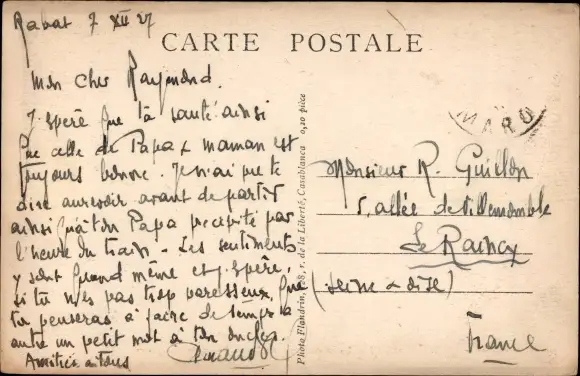 Rabat 7 XII 27
CARTE POSTALE
Mon cher Raymond.
J'espère que ta santé ainsi
que celle de Papa & maman est
toujours bonne. Je n'ai pu te
dire au revoir avant de partir
ainsi qu'à ton Papa précipité par
l'heure du train. Les sentiments
y sont quand même et j'espère,
si tu n'es pas trop paresseux, que
tu penseras à faire de temps à
autre un petit mot à ton
Amitiés à tous
Photo Flandrin, r. de la Liberté, Casablanca 0,20 pièce
MARO
Monsieur R. Guillon
5, allée de Villemomble
Le Raincy
(Seine & Oise)
France